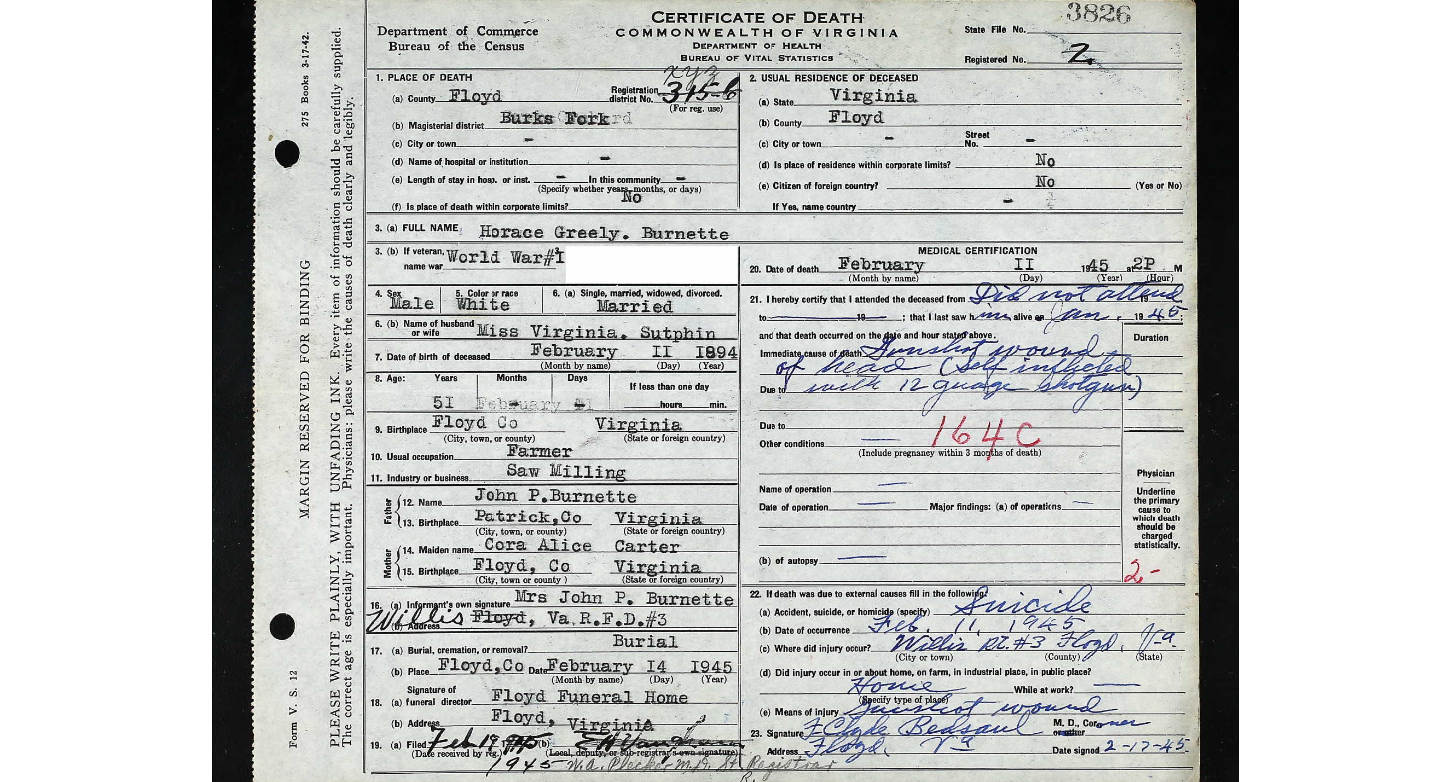 3826
CERTIFICATE OF DEATH
COMMONWEALTH OF VIRGINIA
DEPARTMENT OF HEALTH
BUREAU OF VITAL STATISTICS
Department of Commerce
Bureau of the Census
State File No.
Registered No. 2
275 Books 3-17-42.
MARGIN RESERVED FOR BINDING
Form V. S. 12
PLEASE WRITE PLAINLY, WITH UNFADING INK. Every item of information should be carefully supplied.
The correct age is especially important. Physicians: please write the causes of death clearly and legibly.
1. PLACE OF DEATH
xyz
(a) County Floyd Registration district No. 315-6
(For reg. use)
(b) Magisterial district Burks Fork
(c) City or town -
(d) Name of hospital or institution -
(e) Length of stay in hosp. or inst. - In this community -
(Specify whether years, months, or days)
(f) Is place of death within corporate limits? No
2. USUAL RESIDENCE OF DECEASED
(a) State Virginia
(b) County Floyd
(c) City or town - Street No. -
(d) Is place of residence within corporate limits? No
(e) Citizen of foreign country? No (Yes or No)
If Yes, name country -
3. (a) FULL NAME Horace Greely. Burnette
3. (b) If veteran, name war World War#I
4. Sex Male
5. Color or race White
6. (a) Single, married, widowed, divorced. Married
6. (b) Name of husband or wife Miss Virginia. Sutphin
7. Date of birth of deceased February II I894
(Month by name) (Day) (Year)
8. Age: Years Months Days If less than one day
5I February hours min.
9. Birthplace Floyd Co Virginia
(City, town, or county) (State or foreign country)
10. Usual occupation Farmer
11. Industry or business Saw Milling
Father
12. Name John P.Burnette
13. Birthplace Patrick,Co Virginia
(City, town, or county) (State or foreign country)
Mother
14. Maiden name Cora Alice Carter
15. Birthplace Floyd, Co Virginia
(City, town or county ) (State or foreign country)
16. (a) Informant's own signature Mrs John P. Burnette
(b) Address Willis Floyd, Va R.F.D.#3
17. (a) Burial, cremation, or removal? Burial
(b) Place Floyd,Co Date February I4 I945
(Month by name) (Day) (Year)
18. (a) Signature of funeral director Floyd Funeral Home
(b) Address Floyd, Virginia
19. (a) Filed Feb 19, 1945 (b)
(Date received by reg.) (Local, deputy, or sub-registrar's own signature)
1945 W.A. Plecker M.D. St. Registrar
MEDICAL CERTIFICATION
20. Date of death February II 1945 at 2P M
(Month by name) (Day) (Year) (Hour)
21. I hereby certify that I attended the deceased from Did not attend 19
to 19 ; that I last saw him alive on Jan. 1945;
and that death occurred on the date and hour stated above.
Duration
Immediate cause of death Gunshot wound
of head (self inflicted
Due to with 12 guage shotgun)
Due to
164C
Other conditions
(Include pregnancy within 3 months of death)
Name of operation
Date of operation Major findings: (a) of operations
(b) of autopsy
Physician
Underline
the primary
cause to
which death
should be
charged
statistically.
2-
22. If death was due to external causes fill in the following:
(a) Accident, suicide, or homicide (specify) Suicide
(b) Date of occurrence Feb. 11, 1945
(c) Where did injury occur? Willis Rt.#3 Floyd, Va.
(City or town) (County) (State)
(d) Did injury occur in or about home, on farm, in industrial place, in public place?
Home While at work?
(Specify type of place)
(e) Means of injury Gunshot wound
23. Signature F Clyde Bedsaul M. D., Coroner or other
Address Floyd, Va Date signed 2-17-45